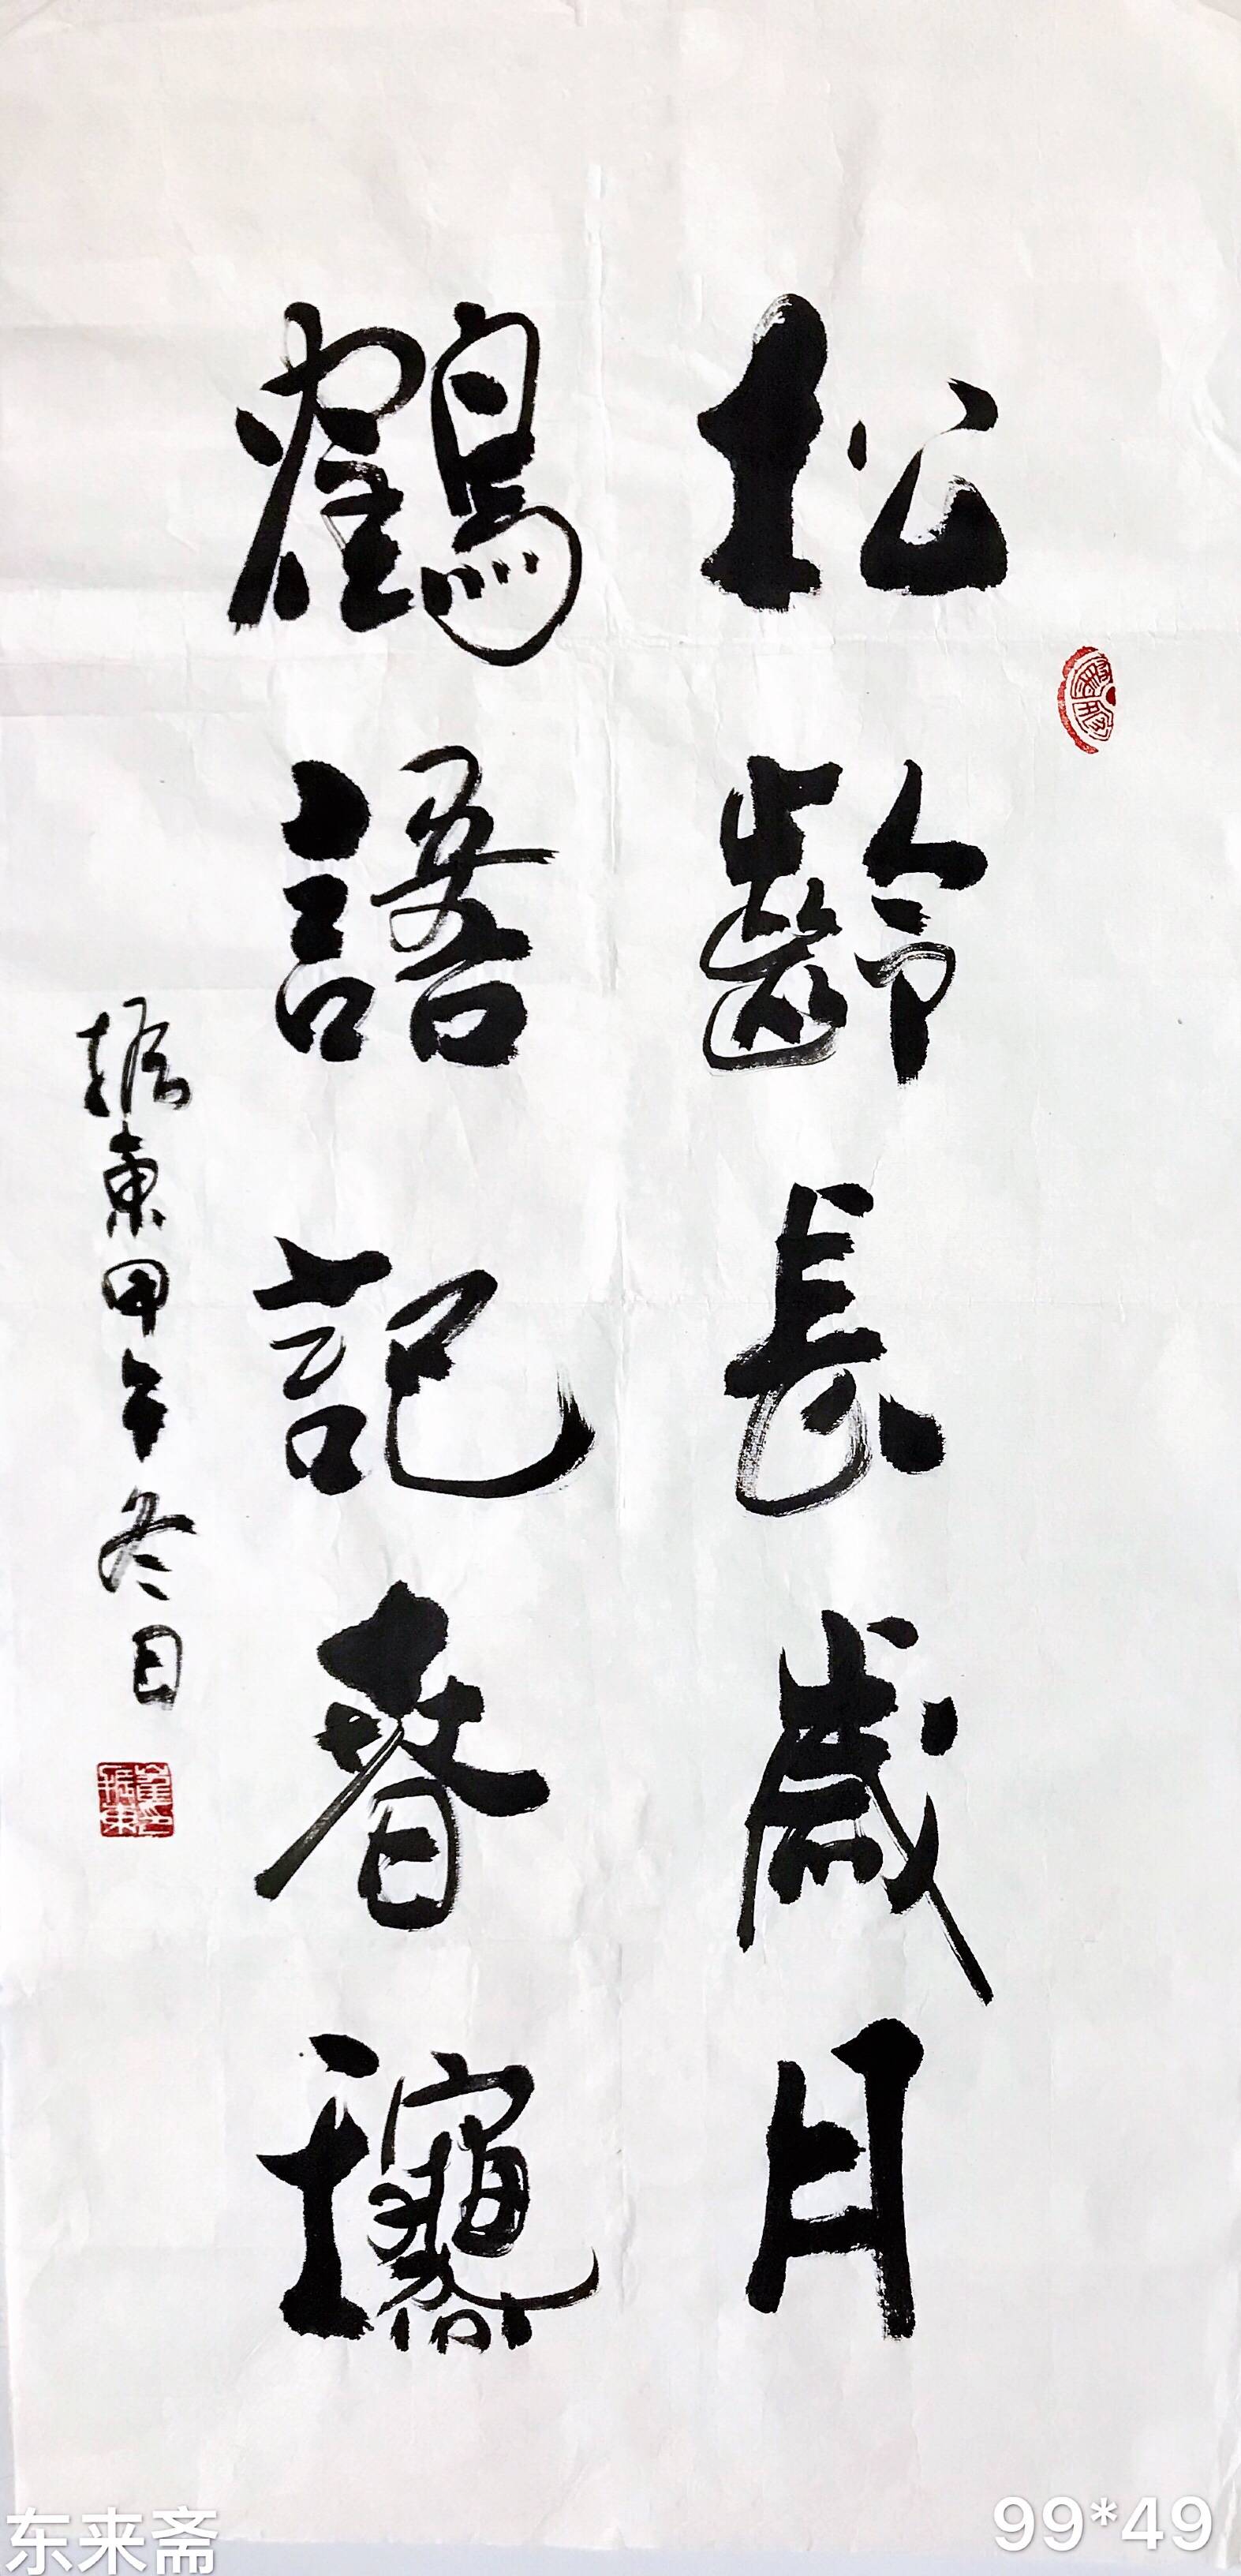 松齡長歲月
鶴語記春秋
振東甲午冬月
東来斋
99*49